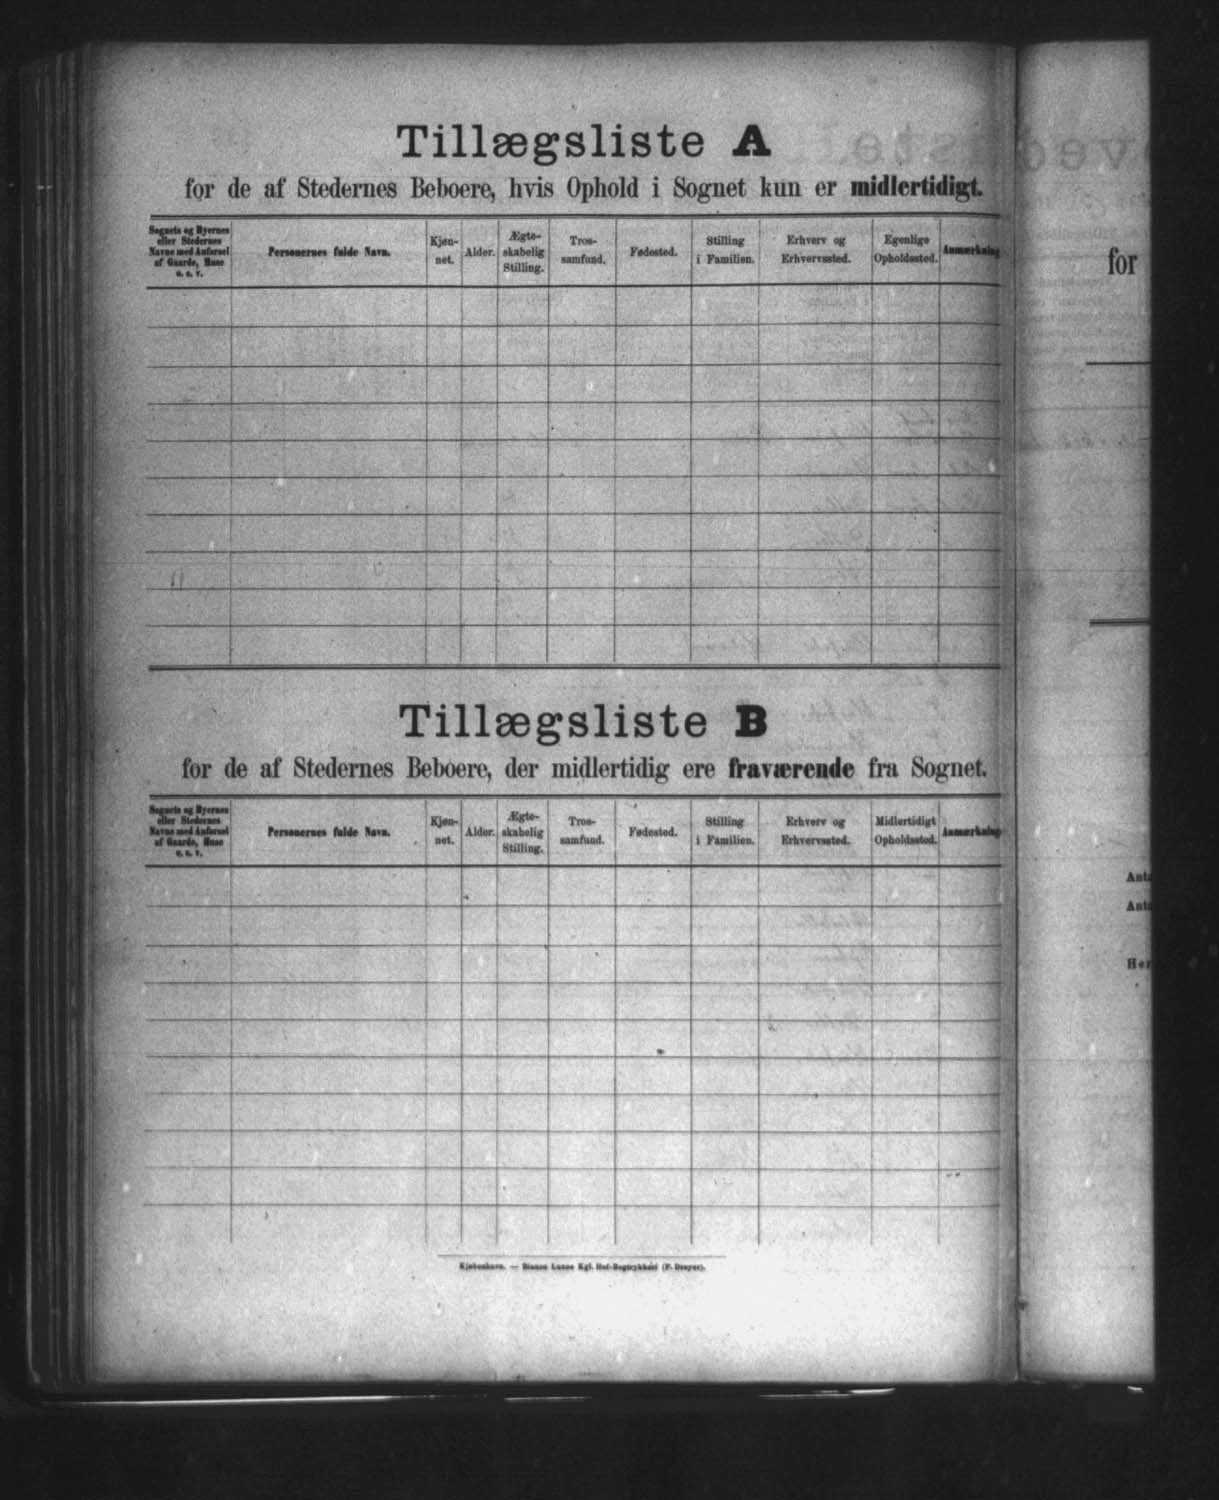 Tillægsliste A
for de af Stedernes Beboere, hvis Ophold i Sognet kun er midlertidigt.
Sognets og Byernes
eller Stedernes
Navne med Anførsel
af Gaarde, Huse
o. s. v.
Personernes fulde Navn.
Kjøn-
net.
Alder.
Ægte-
skabelig
Stilling.
Tros-
samfund.
Fødested.
Stilling
i Familien.
Erhverv og
Erhvervssted.
Egenlige
Opholdssted.
Anmærkning
Tillægsliste B
for de af Stedernes Beboere, der midlertidig ere fraværende fra Sognet.
Sognets og Byernes
eller Stedernes
Navne med Anførsel
af Gaarde, Huse
o. s. v.
Personernes fulde Navn.
Kjøn-
net.
Alder.
Ægte-
skabelig
Stilling.
Tros-
samfund.
Fødested.
Stilling
i Familien.
Erhverv og
Erhvervssted.
Midlertidigt
Opholdssted.
Anmærkning
Kjøbenhavn. — Bianco Lunos Kgl. Hof-Bogtrykkeri (F. Dreyer).
for
Anta
Anta
Her